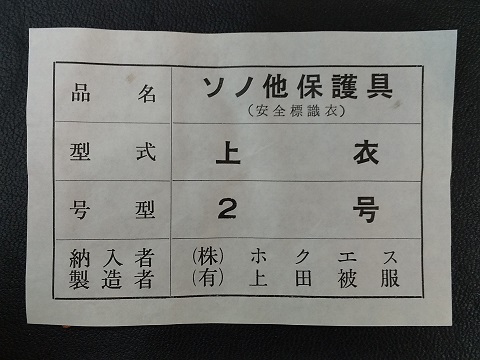 品名 ソノ他保護具
(安全標識衣)
型式 上衣
号型 2号
納入者 (株)ホクエス
製造者 (有)上田被服